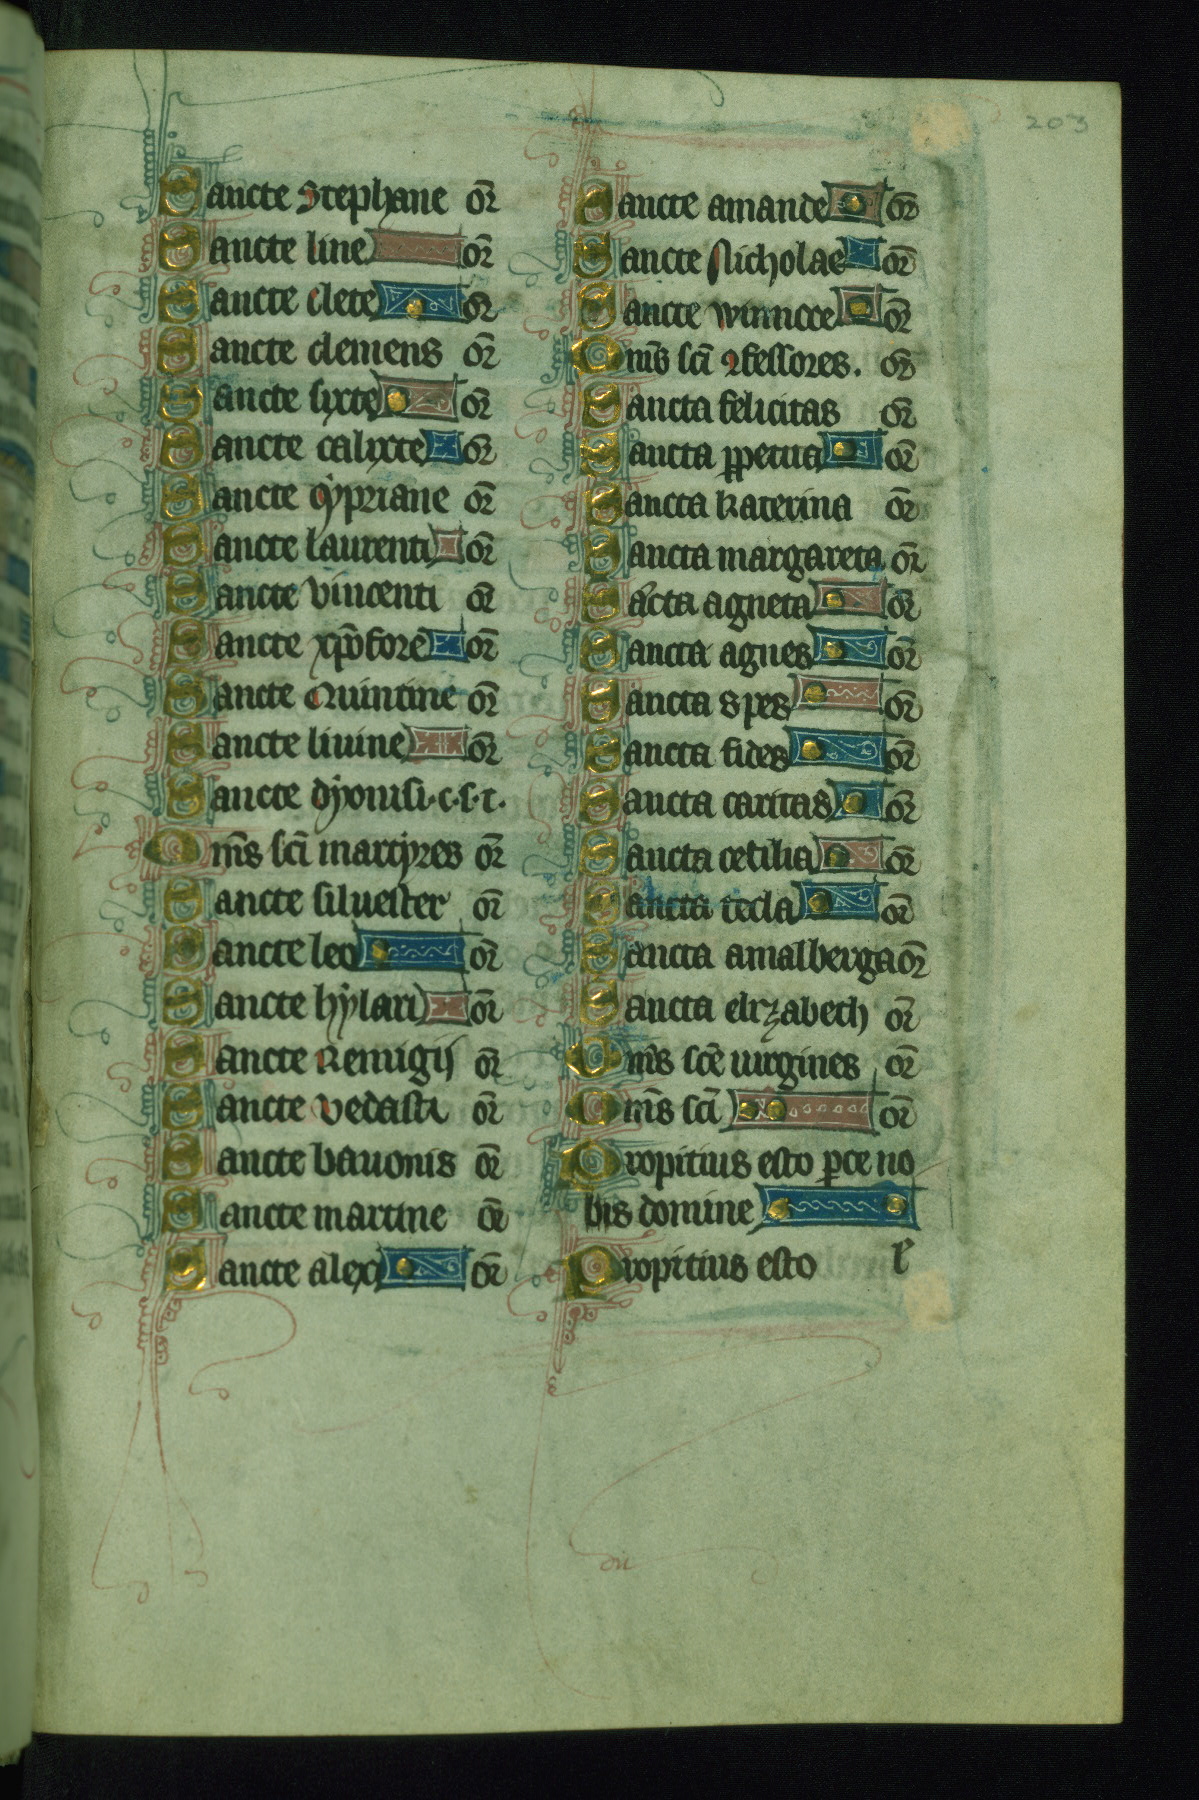 203
Sancte Stephane or̄
Sancte line or̄
Sancte clete or̄
Sancte clemens or̄
Sancte sixte or̄
Sancte calixte or̄
Sancte cypriane or̄
Sancte laurenti or̄
Sancte vincenti or̄
Sancte xp̄ofore or̄
Sancte Quintine or̄
Sancte liuine or̄
Sancte dyonisi·c·s·t·
Om̄s sc̄i martyres or̄
Sancte siluester or̄
Sancte leo or̄
Sancte hylari or̄
Sancte Remigij or̄
Sancte vedasti or̄
Sancte bauonis or̄
Sancte martine or̄
Sancte alexi or̄
Sancte amande or̄
Sancte Nicholae or̄
Sancte winnoce or̄
Om̄s sc̄i ꝯfessores. or̄
Sancta felicitas or̄
Sancta ꝑpetua or̄
Sancta katerina or̄
Sancta margareta or̄
Sācta agneta or̄
Sancta agnes or̄
Sancta spes or̄
Sancta fides or̄
Sancta caritas or̄
Sancta cetilia or̄
Sancta tecla or̄
Sancta amalberga or̄
Sancta elyzabeth or̄
Om̄s sc̄e uirgines or̄
Om̄s sc̄i or̄
Propitius esto ꝑce no
bis domine
Propitius esto l'